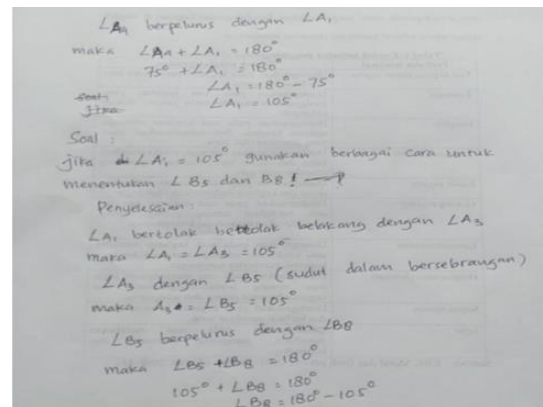 ∠A₄ berpelurus dengan ∠A₁
maka ∠A₄ + ∠A₁ = 180°
75° + ∠A₁ = 180°
∠A₁ = 180° - 75°
∠A₁ = 105°
Soal :
jika ∠A₁ = 105° gunakan berbagai cara untuk
menentukan ∠B5 dan B8!
Penyelesaian :
∠A₁ bertolak bettolak belakang dengan ∠A3
maka ∠A₁ = ∠A3 = 105°
∠A3 dengan ∠B5 (sudut dalam bersebrangan)
maka A3 = ∠B5 = 105°
∠B5 berpelurus dengan ∠B8
maka ∠B5 + ∠B8 = 180°
105° + ∠B8 = 180°
∠B8 = 180° - 105°